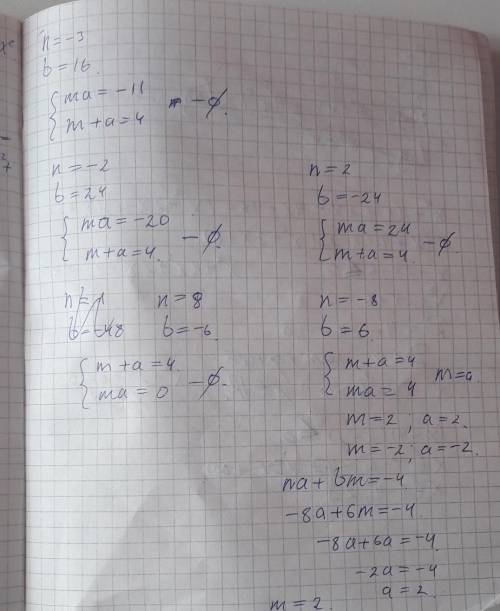 n=-3
b=16.
{ma=-11
{m+a=4 -∅.
n=-2
b=24
{ma=-20
{m+a=4. -∅.
n=8
b=-6.
{m+a=4.
{ma=0 -∅.
n=2
b=-24
{ma=24
{m+a=4. -∅.
n=-8
b=6.
{m+a=4
{ma=4 m=a
m=2; a=2.
m=-2; a=-2.
na+bm=-4.
-8a+6m=-4.
-8a+6a=-4.
-2a=-4
a=2.
m=2.